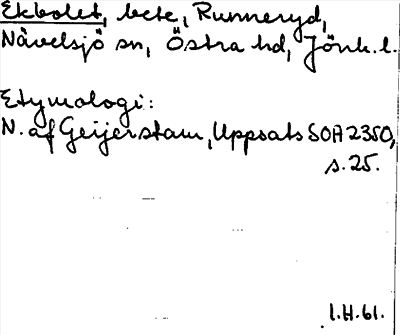 Ekbolet, bete, Runneryd,
Nävelsjö sn, Östra hd, Jönk.l.
Etymologi:
N. af Geijerstam, Uppsats SOA 2350,
s. 25.
I.H.61.